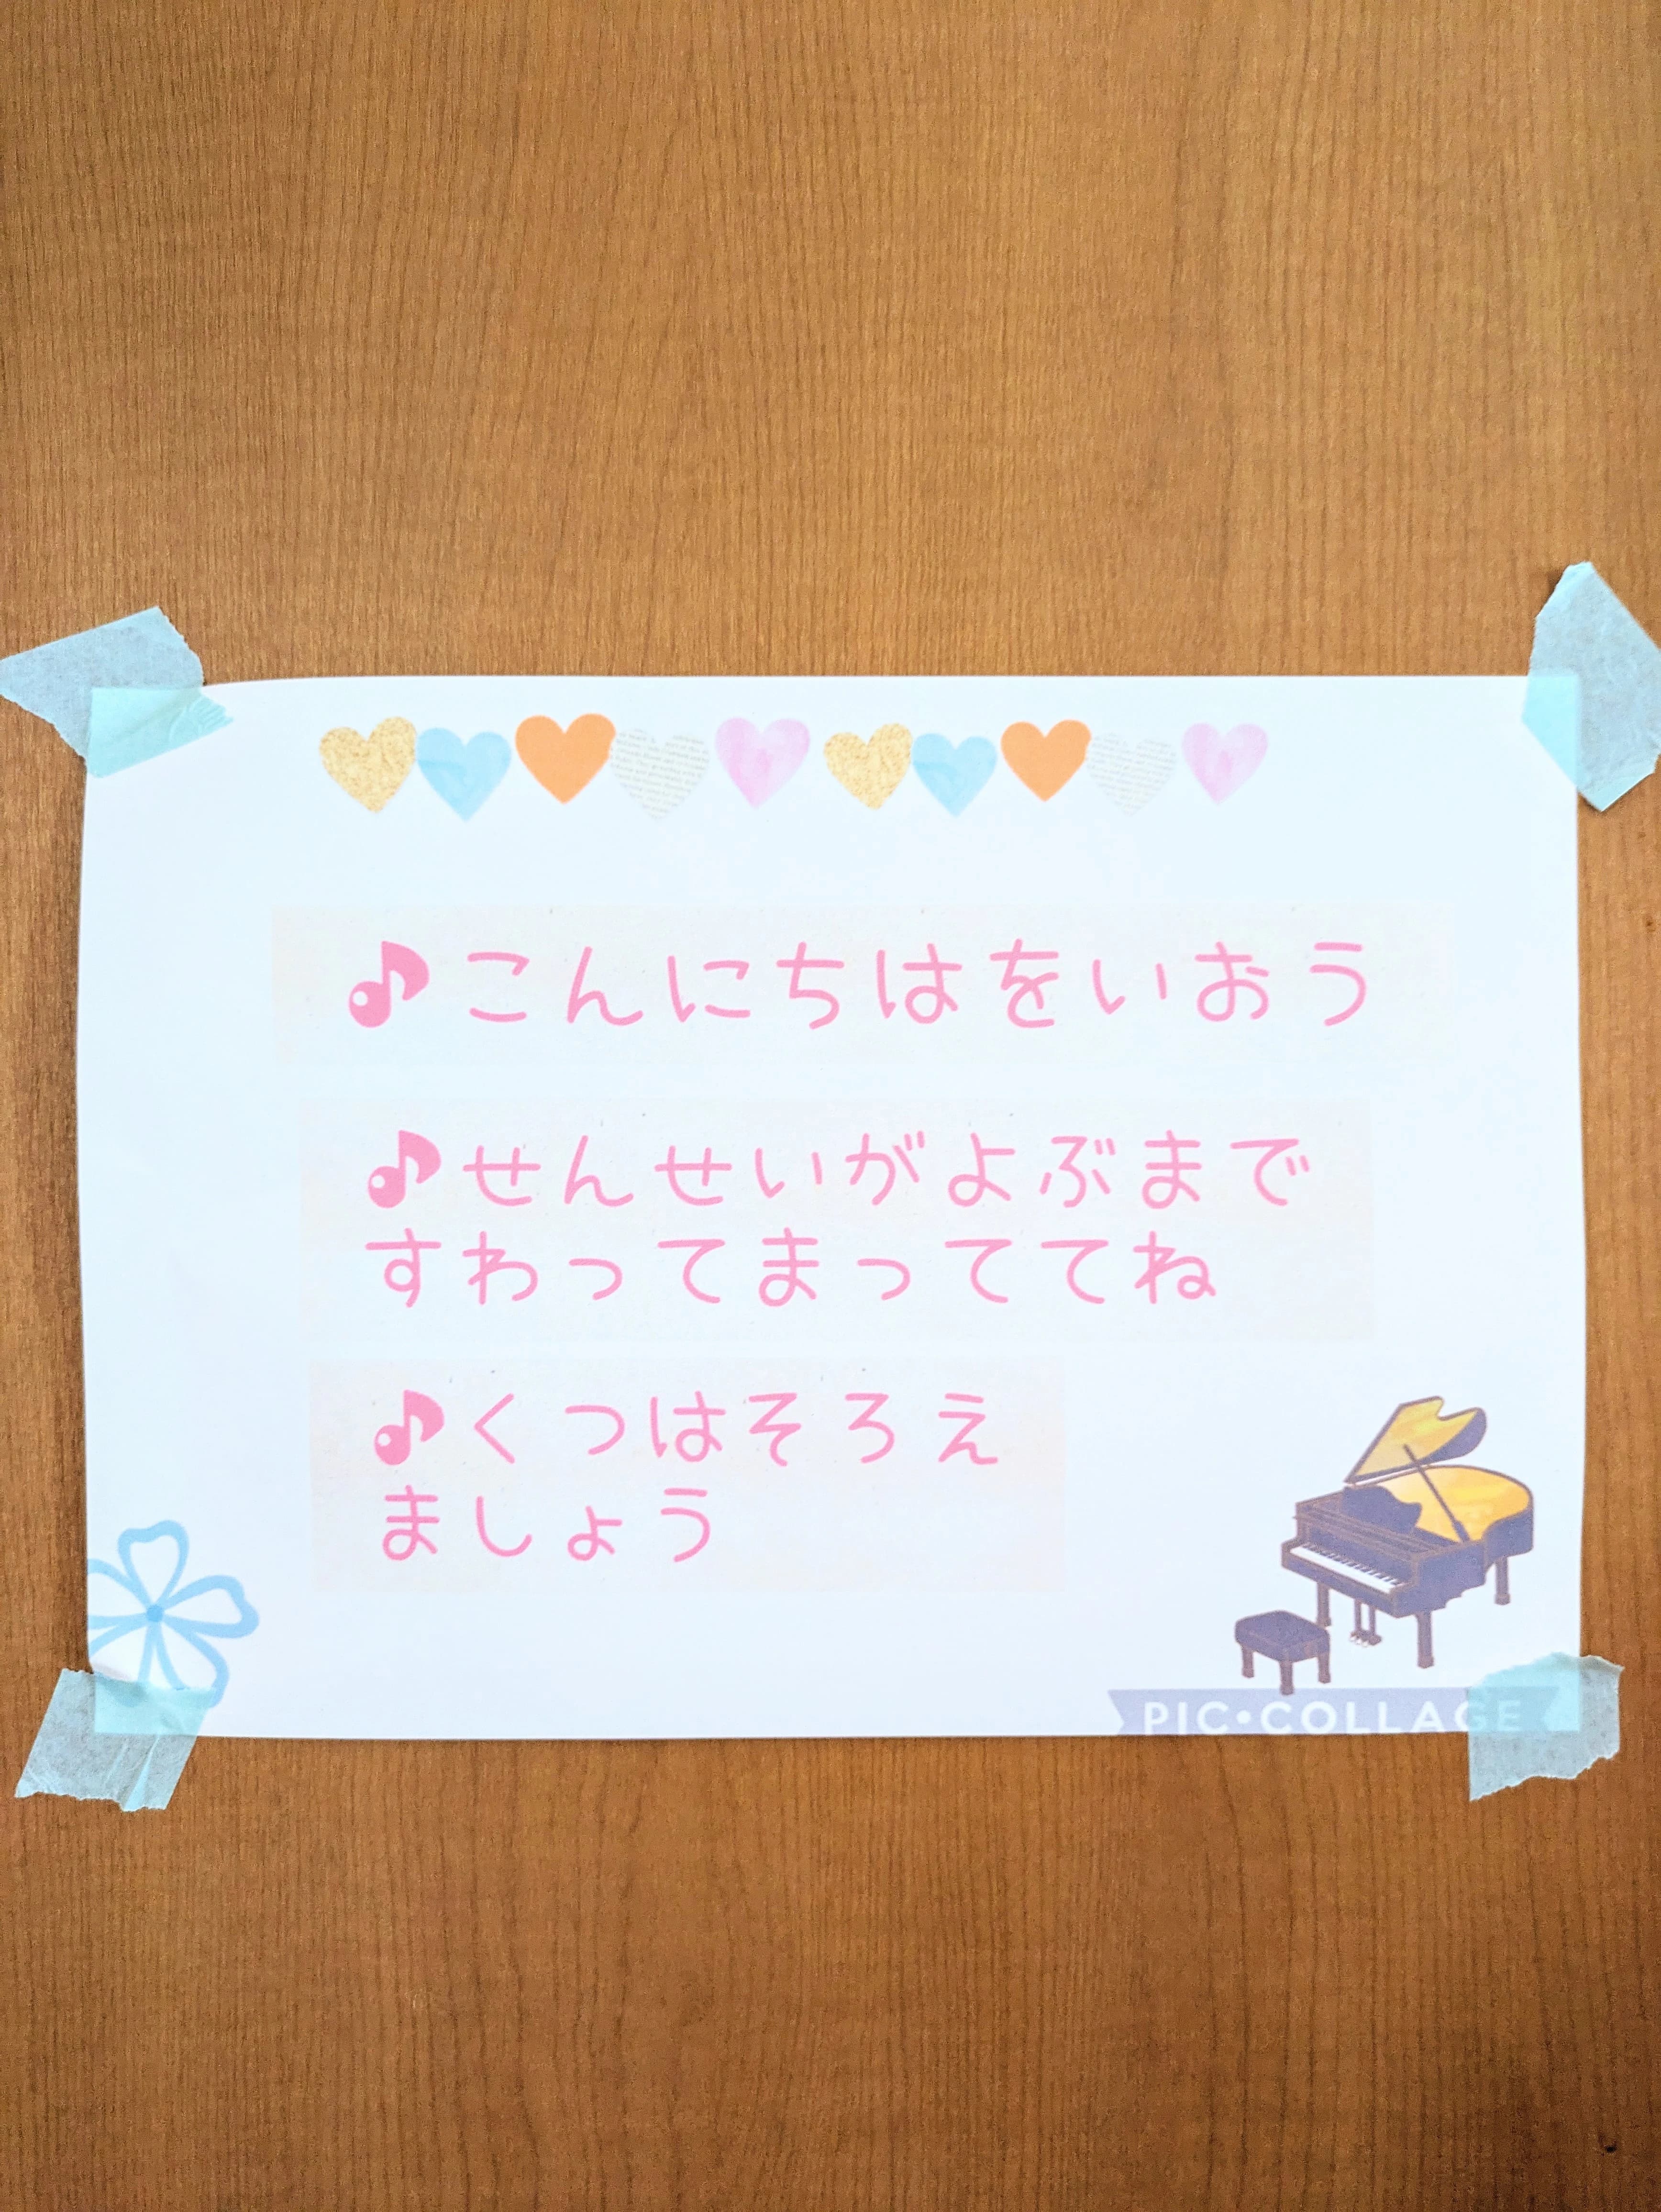 ♪こんにちはをいおう
♪せんせいがよぶまで
すわってまっててね
♪くつはそろえ
ましょう
PIC•COLLAGE